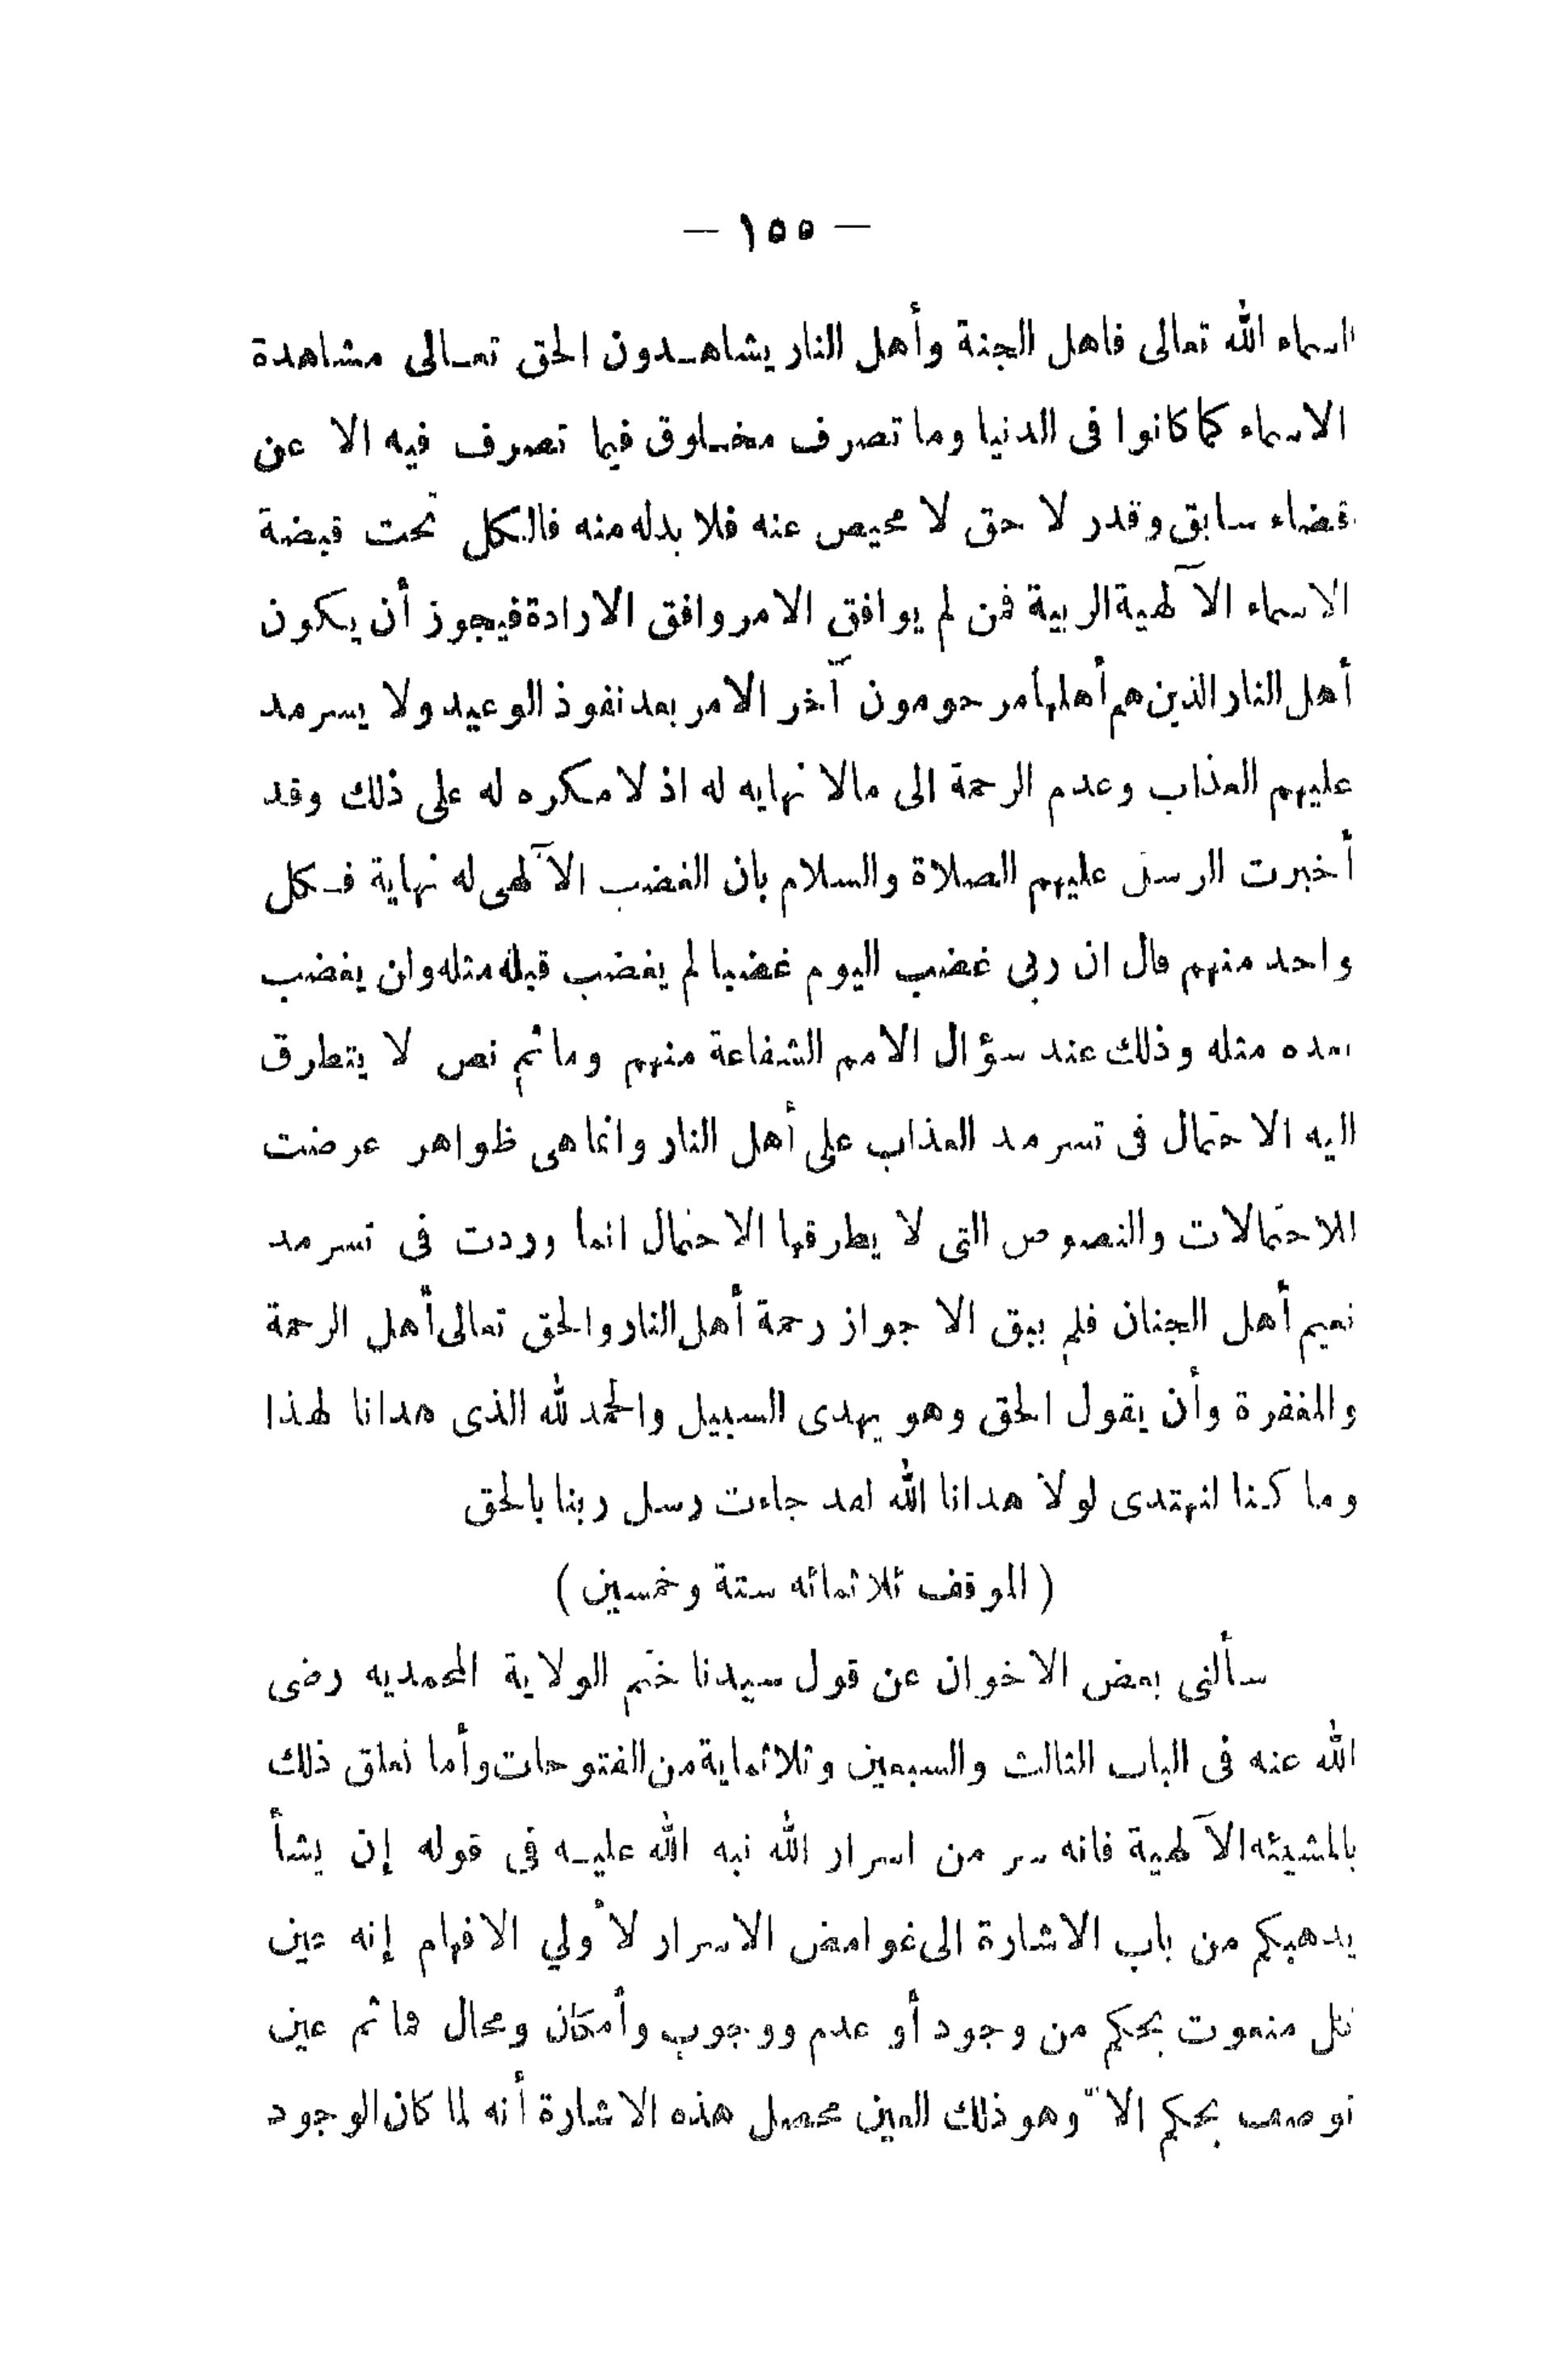 — ١٥٥ —
اسماء الله تعالى فاهل الجنة وأهل النار يشاهـدون الحق تعـالى مشاهدة
الاسماء كما كانوا فى الدنيا وما تصرف مخـلوق فيما تصرف فيه الا عن
قضاء سابق وقدر لا حق لا محيص عنه فلا بد له منه فالكل تحت قبضة
الاسماء الآلهية الربية فمن لم يوافق الامر وافق الارادة فيجوز أن يكون
أهل النار الذين هم أهلها مرحومون آخر الامر بعد نفوذ الوعيد ولا يسرمد
عليهم العذاب وعدم الرحمة الى مالا نهايه له اذ لا مكره له على ذلك وقد
أخبرت الرسل عليهم الصلاة والسلام بان الغضب الآلهى له نهاية فـكل
واحد منهم قال ان ربى غضب اليوم غضبا لم يغضب قبله مثله ولن يغضب
بعده مثله وذلك عند سؤال الامم الشفاعة منهم وما ثم نص لا يتطرق
اليه الاحتمال فى تسرمد العذاب على أهل النار وانما هى ظواهر عرضت
للاحتمالات والنصوص التى لا يطرقها الاحتمال انما وردت فى تسرمد
نعيم أهل الجنان فلم يبق الا جواز رحمة أهل النار والحق تعالى أهل الرحمة
والمغفرة وأن يقول الحق وهو يهدى السبيل والحمد لله الذى هدانا لهذا
وما كنا لنهتدى لولا هدانا الله لقد جاءت رسل ربنا بالحق
( الموقف ثلاثمائه ستة وخمسين )
سألنى بعض الاخوان عن قول سيدنا ختم الولاية المحمديه رضى
الله عنه فى الباب الثالث والسبعين وثلاثماية من الفتوحات وأما تعلق ذلك
بالمشيئه الآلهية فانه سر من اسرار الله نبه الله عليـه في قوله إن يشأ
يذهبكم من باب الاشارة الى غوامض الاسرار لأولي الافهام إنه عين
كل منعوت بحكم من وجود أو عدم ووجوب وأمكان ومحال فما ثم عين
توصف بحكم الا وهو ذلك العين محصل هذه الاشارة أنه لما كان الوجود